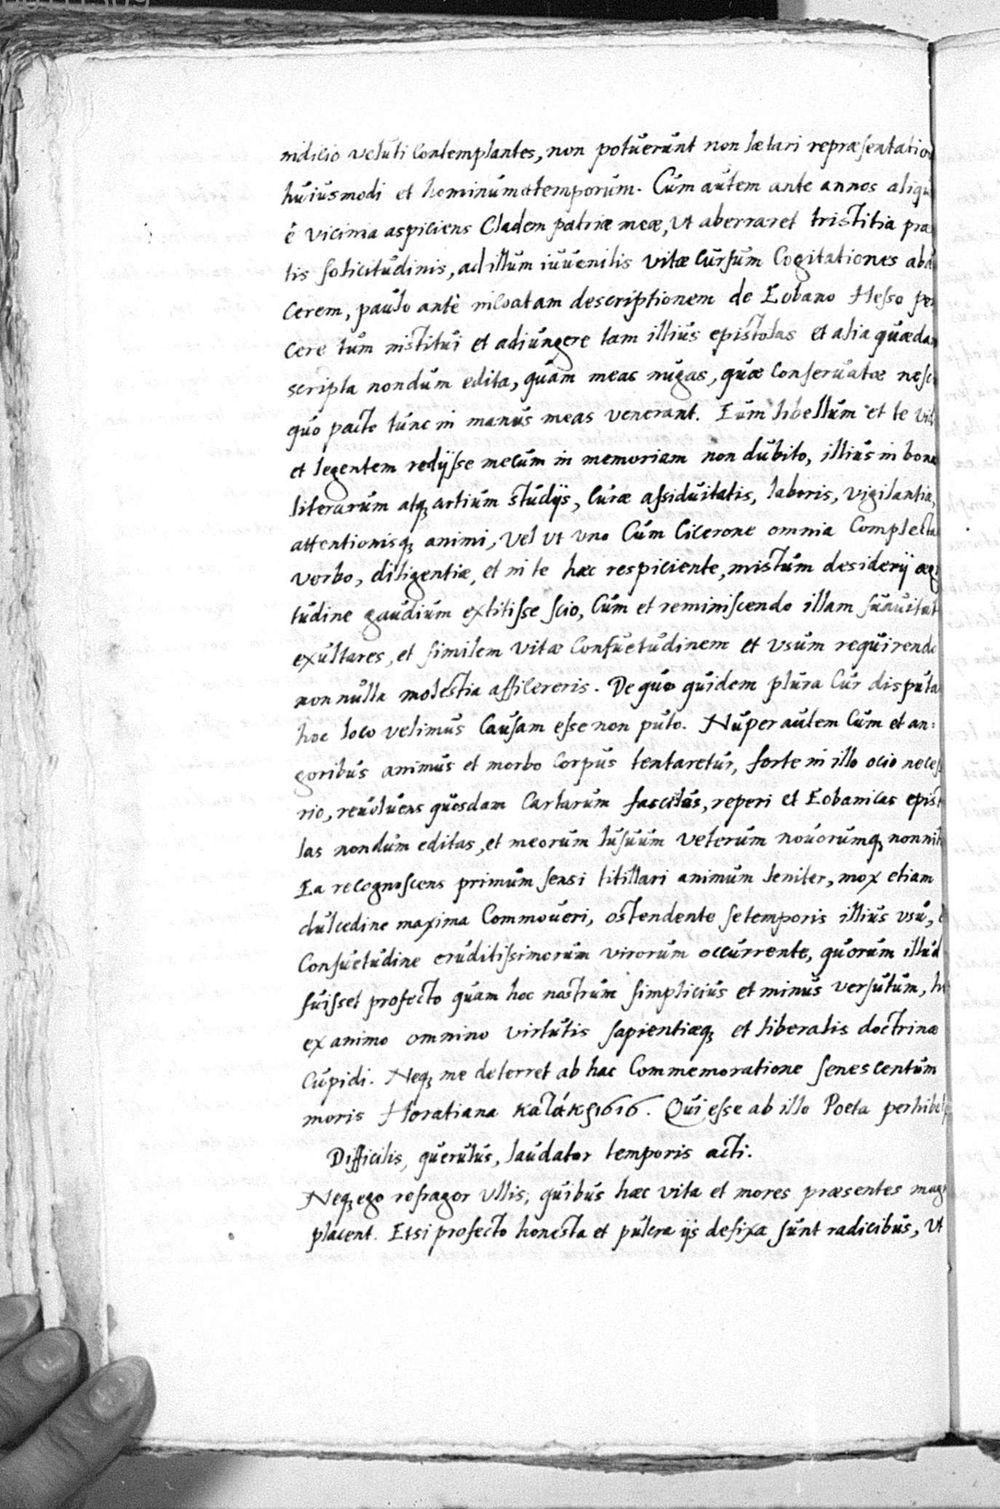 indicio veluti Contemplantes, non potuerunt non lætari repræsentation
huiusmodi et hominum et temporum. Cum autem ante annos aliqu
è vicinia aspiciens Cladem patriæ meæ, Ut aberraret tristitia præ
tis solicitudinis, ad illum iuvenilis vitæ Cursum Cogitationes abdu
Cerem, paulo antè incoatam descriptionem de Eobano Hesso per
Cere tum institui et adiungere tam illius epistolas et alia quædam
scripta nondum edita, quam meas nugas, quæ Conservatæ nesci
quo pacto tunc in manus meas venerant. Eum libellum et te vid
et legentem redijsse mecum in memoriam non dubito, illius in bona
literarum atq artium studijs, Curæ assiduitatis, laboris, vigilantiæ,
attentionisq animi, Vel ut uno Cum Cicerone omnia Complecta
verbo, diligentiæ, et in te hæc respiciente, mistum desiderij ægri
tudine gaudium extitisse scio, Cum et reminiscendo illam suavitat
exultares, et similem vitæ Consuetudinem et usum requirendo
non nulla molestia afficereris. De quo quidem plura Cur disputa
hoc loco velimus Causam esse non puto. Nuper autem Cum et an:
goribus animus et morbo Corpus tentaretur, forte in illo ocio necess
rio, revolvens quosdam Cartarum fascilus, reperi et Eobanicas epist
las nondum editas, et meorum lusuum veterum novorumq nonnih
Ea recognoscens primum sensi titillari animum leniter, mox etiam
dulcedine maxima Commoveri, ostendente se temporis illius usu,
Consuetudine eruditissimorum virorum occurrente, quorum illud
fuisset profecto quam hoc nostrum simplicius et minus versutum, hi
ex animo omnino virtutis sapientiæq et liberalis doctrinæ
Cupidi. Neq me deterret ab hac Commemoratione senescentum
moris Horatiana . Qui esse ab illo Poeta perhibet
Difficilis, querulus, laudator temporis acti.
Neq ego refragor Ullis, quibus hæc vita et mores præsentes mag
placent. Etsi profecto honesta et pulcra ijs defixa sunt radicibus, Ut